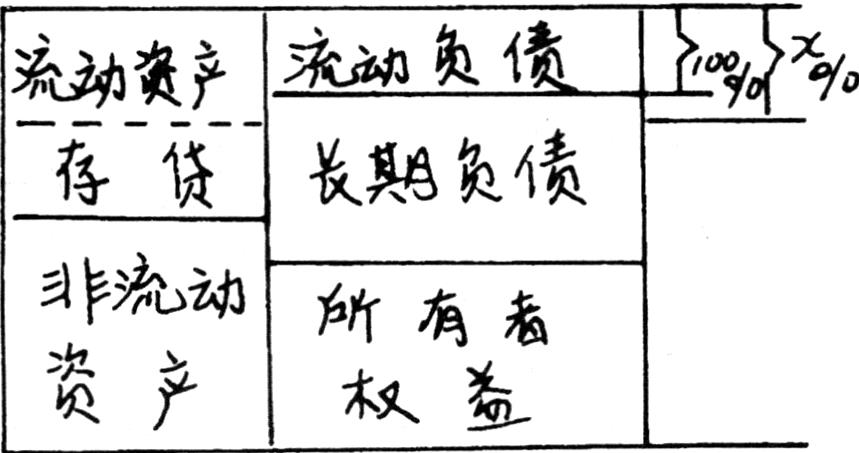 流动资产
存 贷
非流动
资 产
流动负债
长期负债
所有者
权益
100%
x%